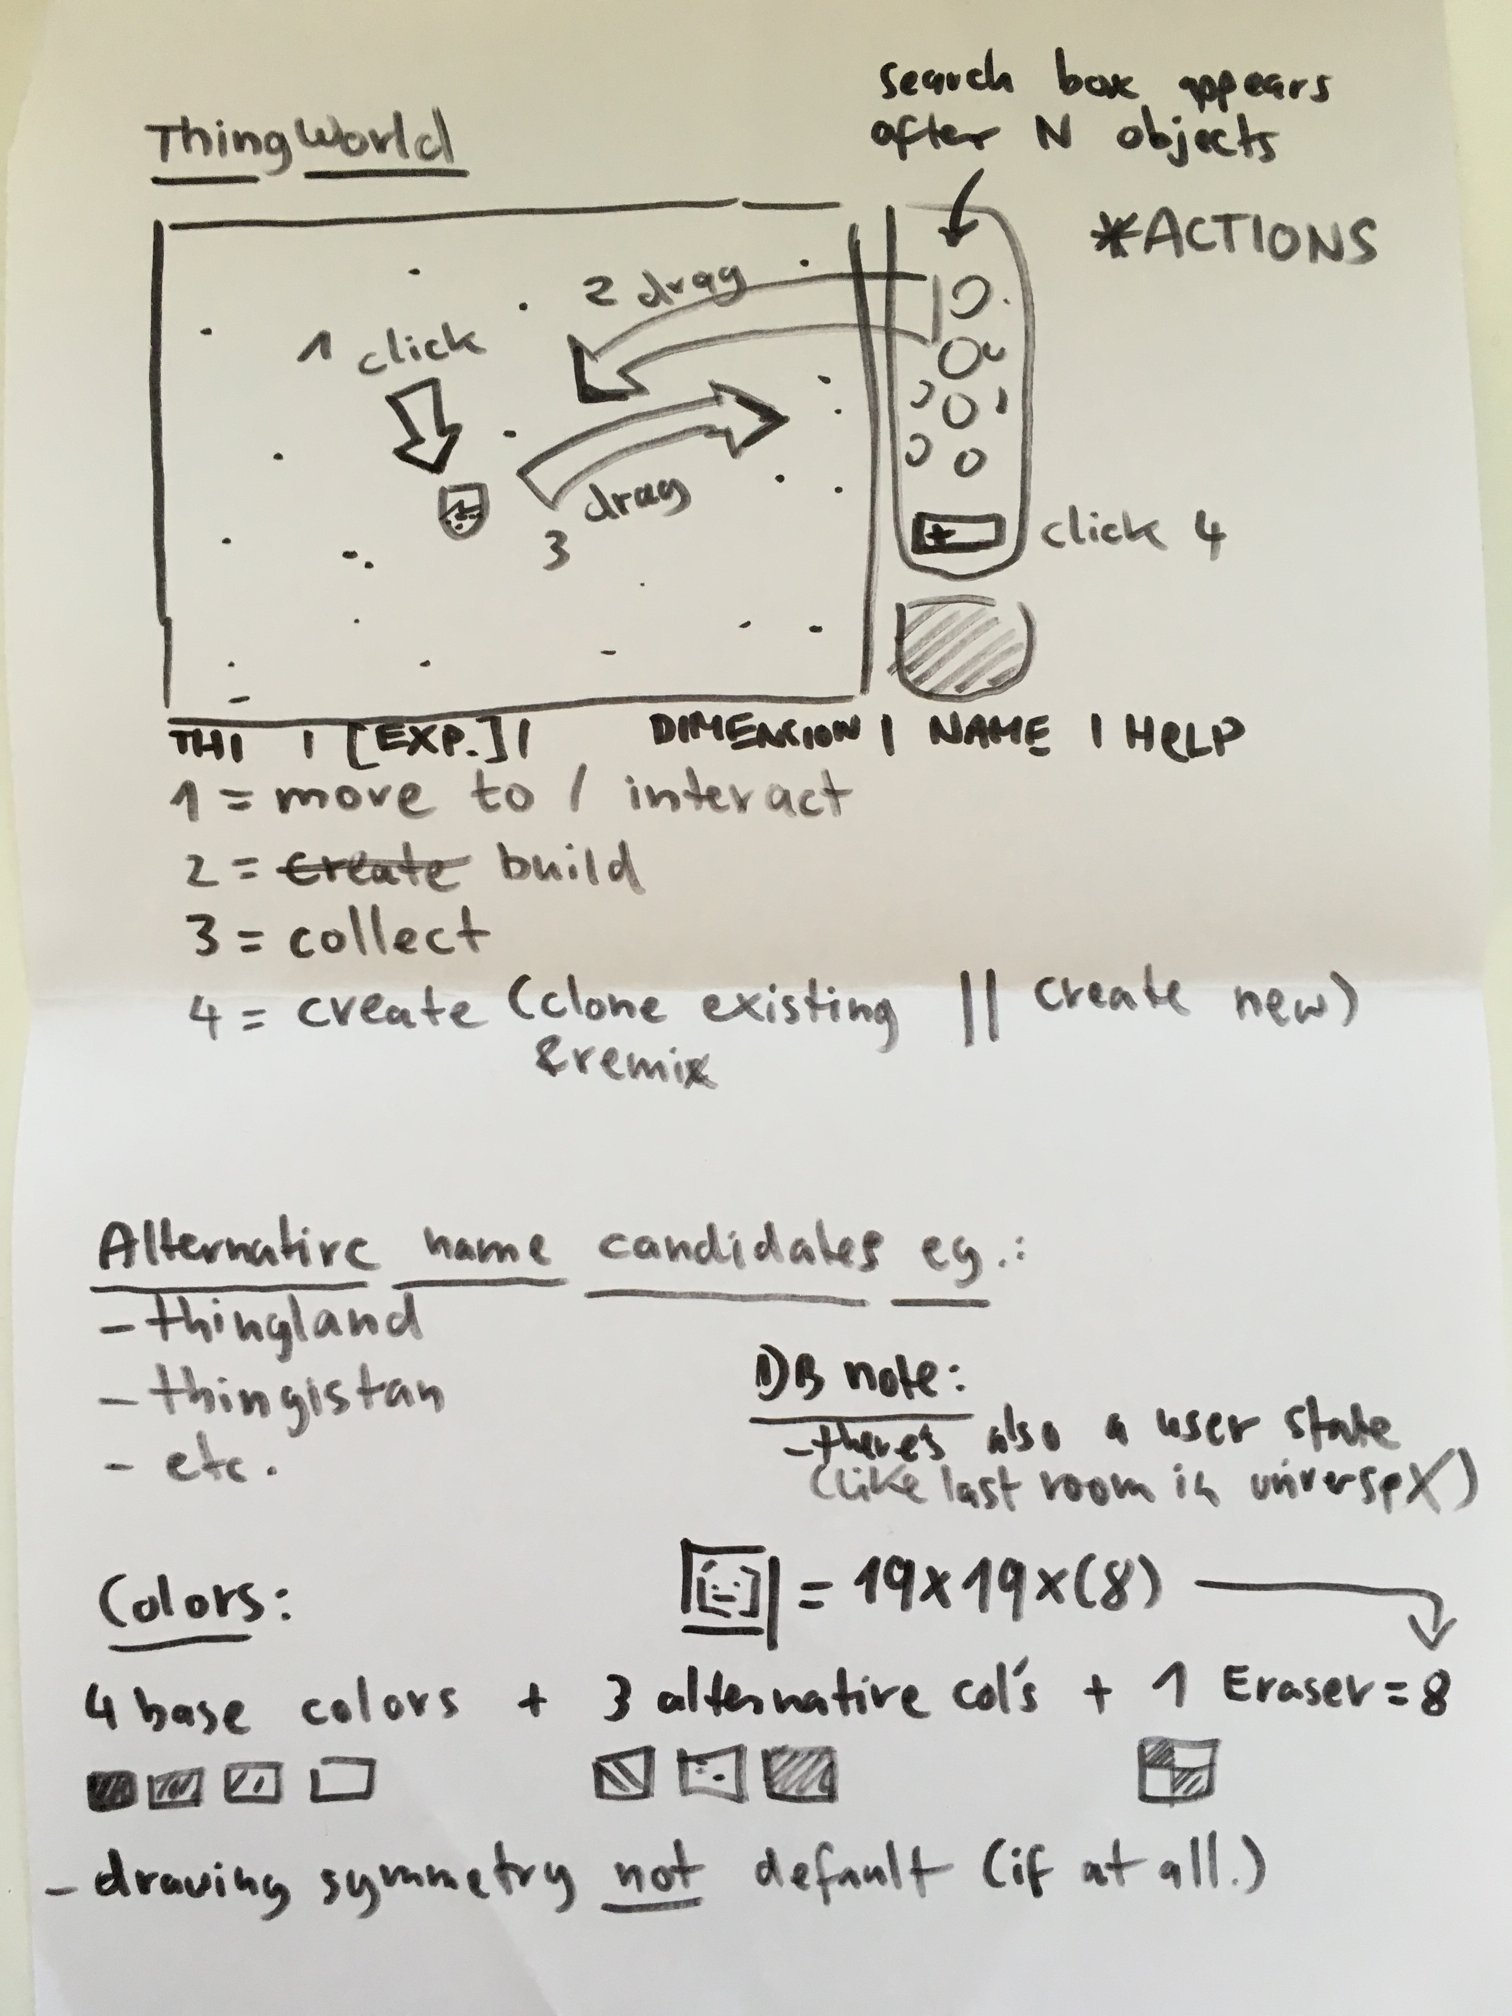 search box appears
after N objects
ThingWorld
*ACTIONS
2 drag
1 click
drag
3
+
click 4
THI | [EXP.] | DIMENSION | NAME | HELP
1 = move to / interact
2 = create build
3 = collect
4 = create (clone existing || create new)
& remix
Alternative name candidates eg.:
- thingland
- thingistan
- etc.
DB note:
- there's also a user state
(like last room in universe X)
Colors:
= 19x19x(8)
4 base colors + 3 alternative col's + 1 Eraser = 8
- drawing symmetry not default (if at all.)